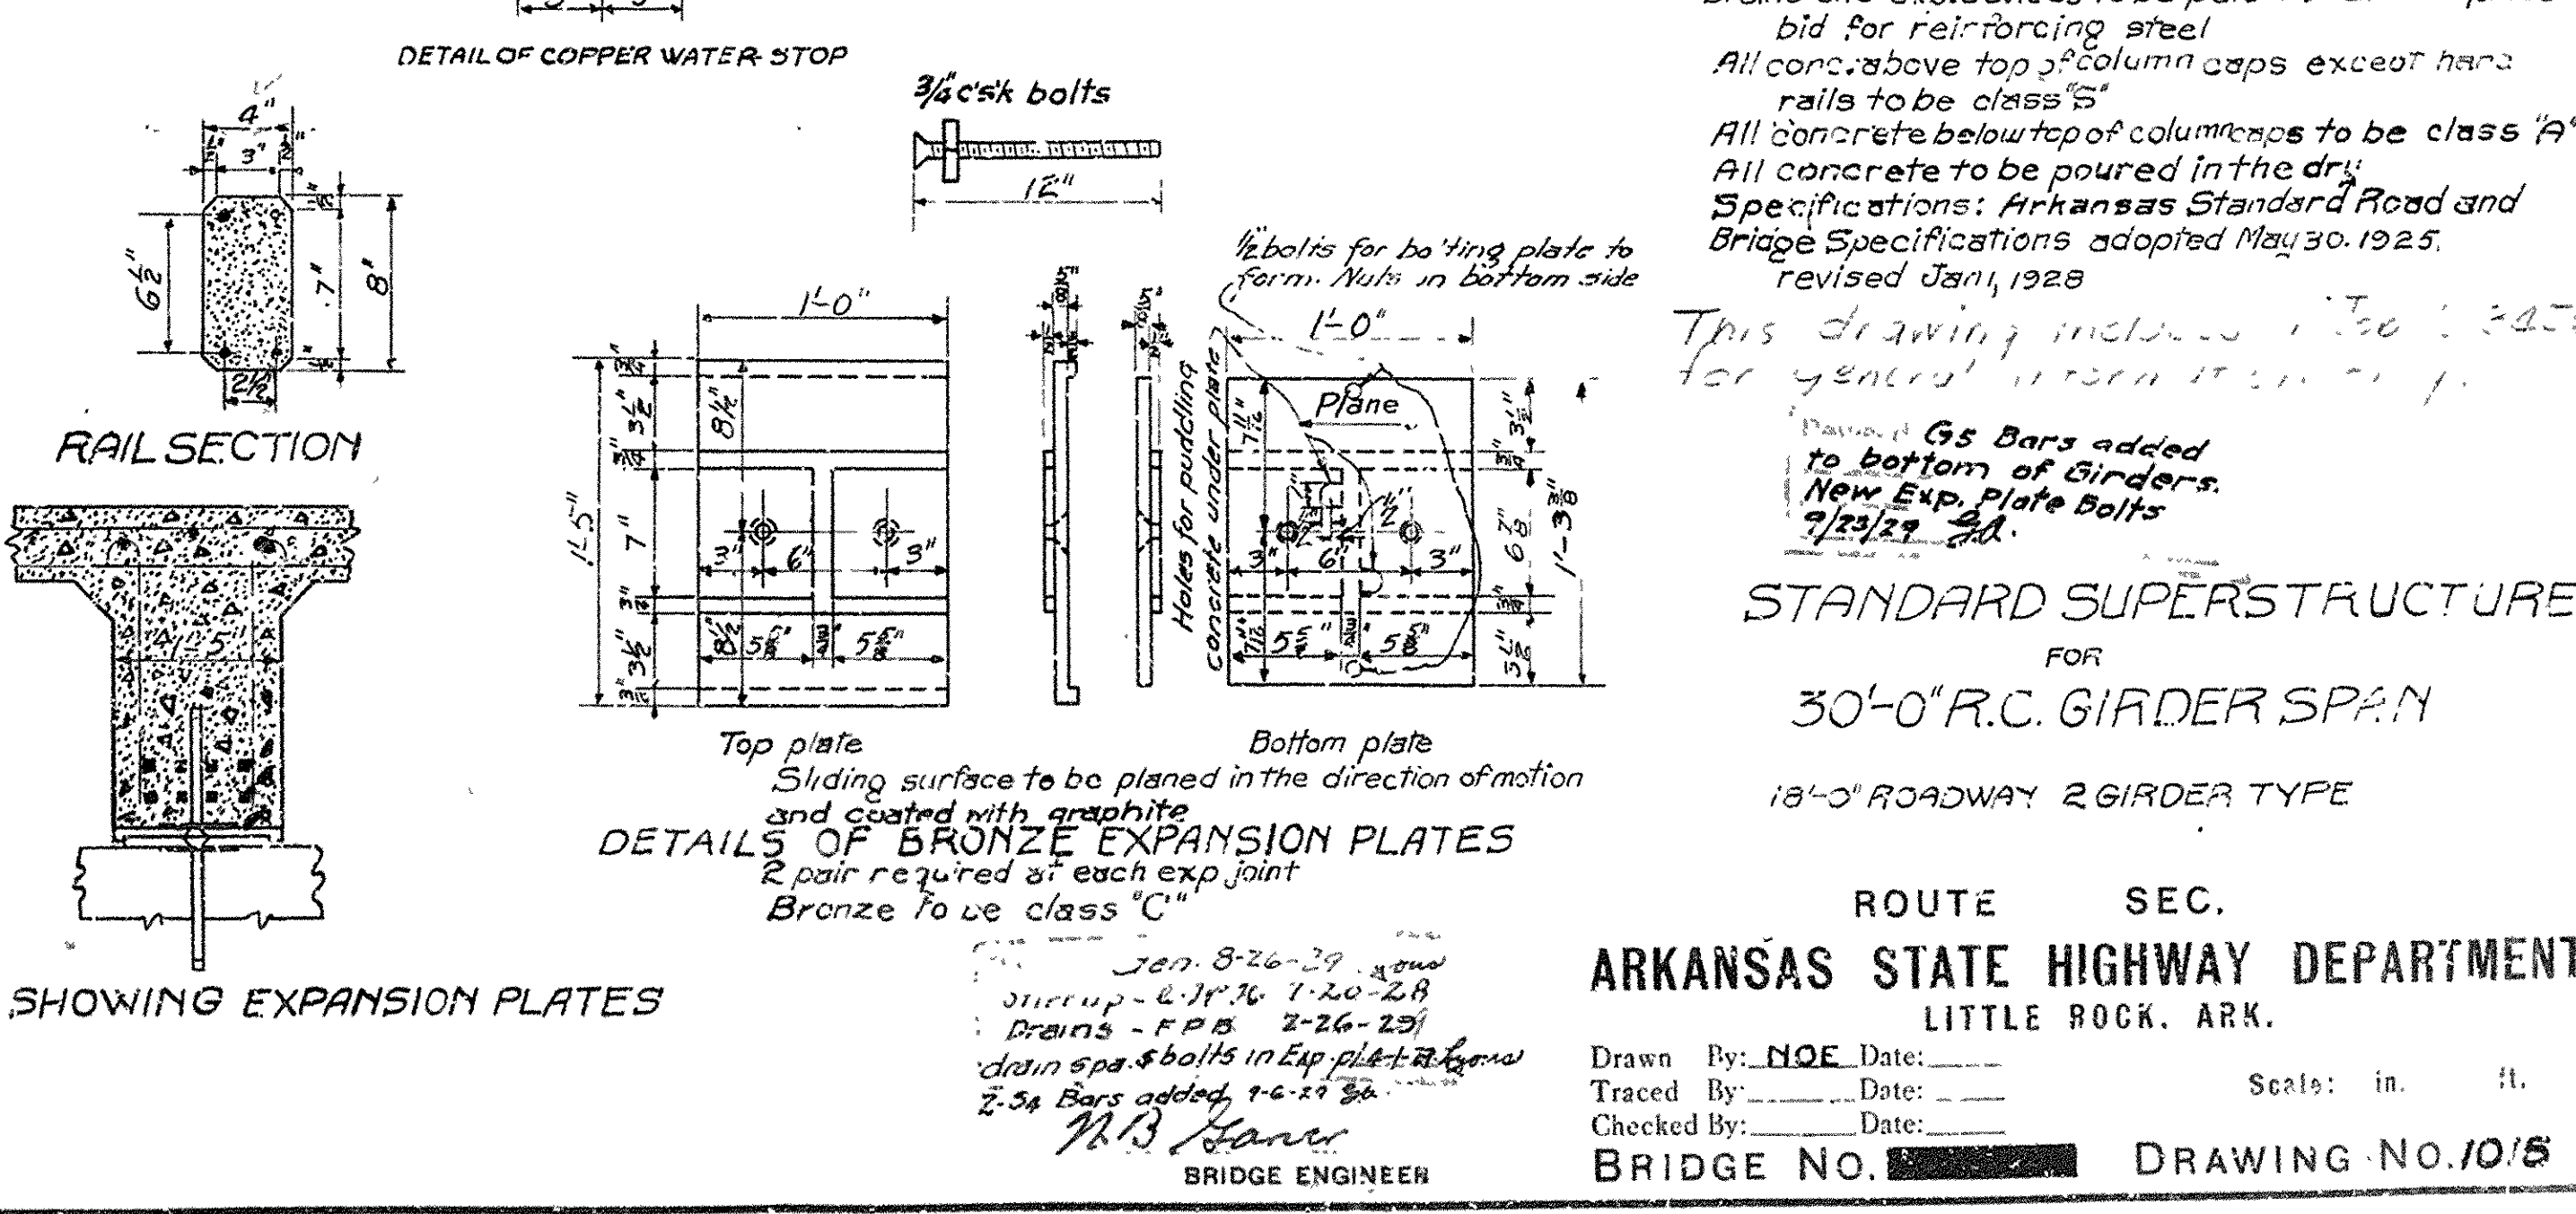 DETAIL OF COPPER WATER-STOP
3/4" c's'k bolts
12"
4"
1/2" 3" 1/2"
6 1/2"
7"
8"
2 1/2"
RAIL SECTION
1'-5"
SHOWING EXPANSION PLATES
1/2" bolts for bolting plate to
form. Nuts in bottom side
1'-0"
1'-5"
3/4"
3 1/2"
3/4"
7"
3/4"
3 1/2"
3/4"
8 1/2"
8 1/2"
3" 6" 3"
5 5/8" 3/4" 5 5/8"
Top plate
Holes for puddling
concrete under plate
1'-0"
Plane
7 11/16"
7 11/16"
3" 6" 3"
5 5/8" 3/4" 5 5/8"
3 1/2"
3/4"
6 7/8"
3/4"
3 1/2"
1'-3 3/8"
Bottom plate
Sliding surface to be planed in the direction of motion
and coated with graphite
DETAILS OF BRONZE EXPANSION PLATES
2 pair required at each exp joint
Bronze to be class "C"
Gen. 8-26-29
Stirrup - 7-20-28
Drains - FPB 2-26-29
drain spa. & bolts in Exp. plate
Bars added 9-6-29
BRIDGE ENGINEER
bid for reinforcing steel
All conc. above top of column caps except hand
rails to be class "S"
All concrete below top of column caps to be class "A"
All concrete to be poured in the dry
Specifications: Arkansas Standard Road and
Bridge Specifications adopted May 30. 1925.
revised Jan 1, 1928
This drawing included
for general information only.
G5 Bars added
to bottom of Girders.
New Exp. Plate Bolts
9/23/29
STANDARD SUPERSTRUCTURE
FOR
30'-0" R.C. GIRDER SPAN
18'-0" ROADWAY 2 GIRDER TYPE
ROUTE SEC.
ARKANSAS STATE HIGHWAY DEPARTMENT
LITTLE ROCK, ARK.
Drawn By: NOE Date:
Traced By Date:
Scale: in. ft.
Checked By: Date:
BRIDGE NO.
DRAWING NO. 1015